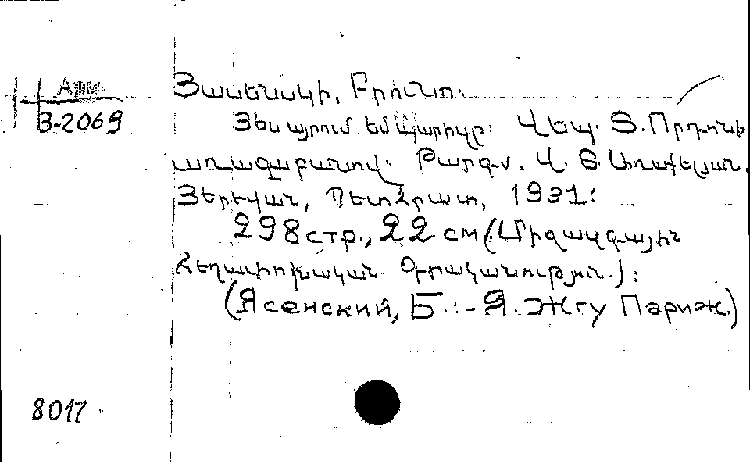 Арм.
3-2069
Յասենսկի, Բրունո.
Յես այրում եմ Պարիզը. Վեպ. Տ. Որդունի
առաջաբանով. Թարգմ. Վ. Տ. Առաքելյան.
Յերեվան, Պետհրատ, 1931:
298 стр., 22 см (Միջազգային
Հեղափոխական Գրականություն.):
(Ясенский, Б. - Я. Жгу Париж.)
8017